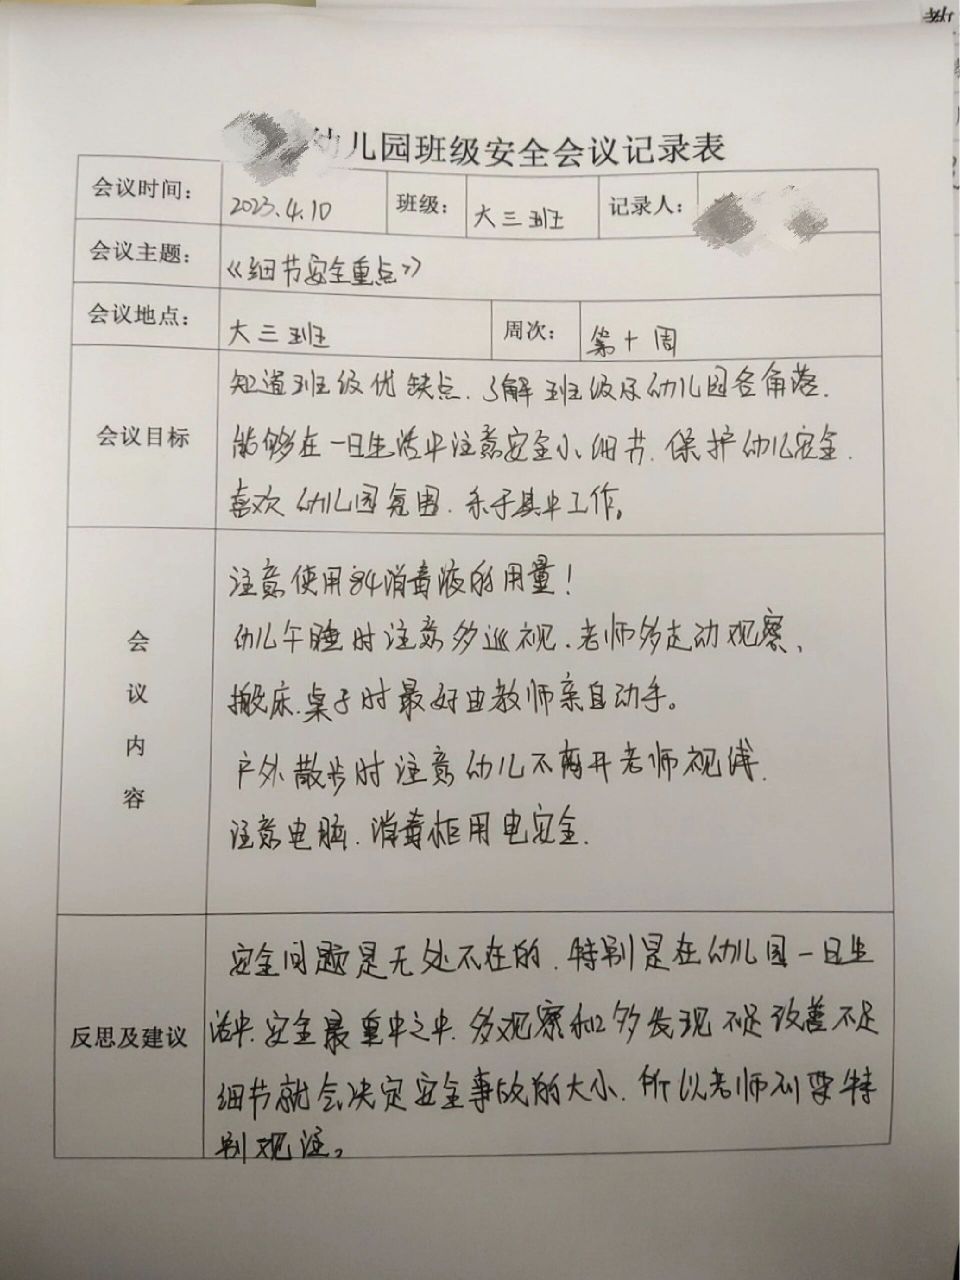 幼儿园班级安全会议记录表
会议时间： 2023.4.10 班级： 大三班 记录人：
会议主题： 《细节安全重点》
会议地点： 大三班 周次： 第十周
会议目标
知道班级优缺点、了解班级及幼儿园各角落.
能够在一日生活中注意安全小细节、保护幼儿安全.
喜欢幼儿园氛围、乐于其中工作。
会议内容
注意使用84消毒液的用量！
幼儿午睡时注意多巡视、老师多走动观察、
搬床、桌子时最好由教师亲自动手。
户外散步时注意幼儿不离开老师视线.
注意电脑、消毒柜用电安全.
反思及建议
安全问题是无处不在的、特别是在幼儿园一日生
活中、安全最重中之中、多观察和多发现不足改善不足
细节就会决定安全事故的大小、所以老师们要特
别观注。
教